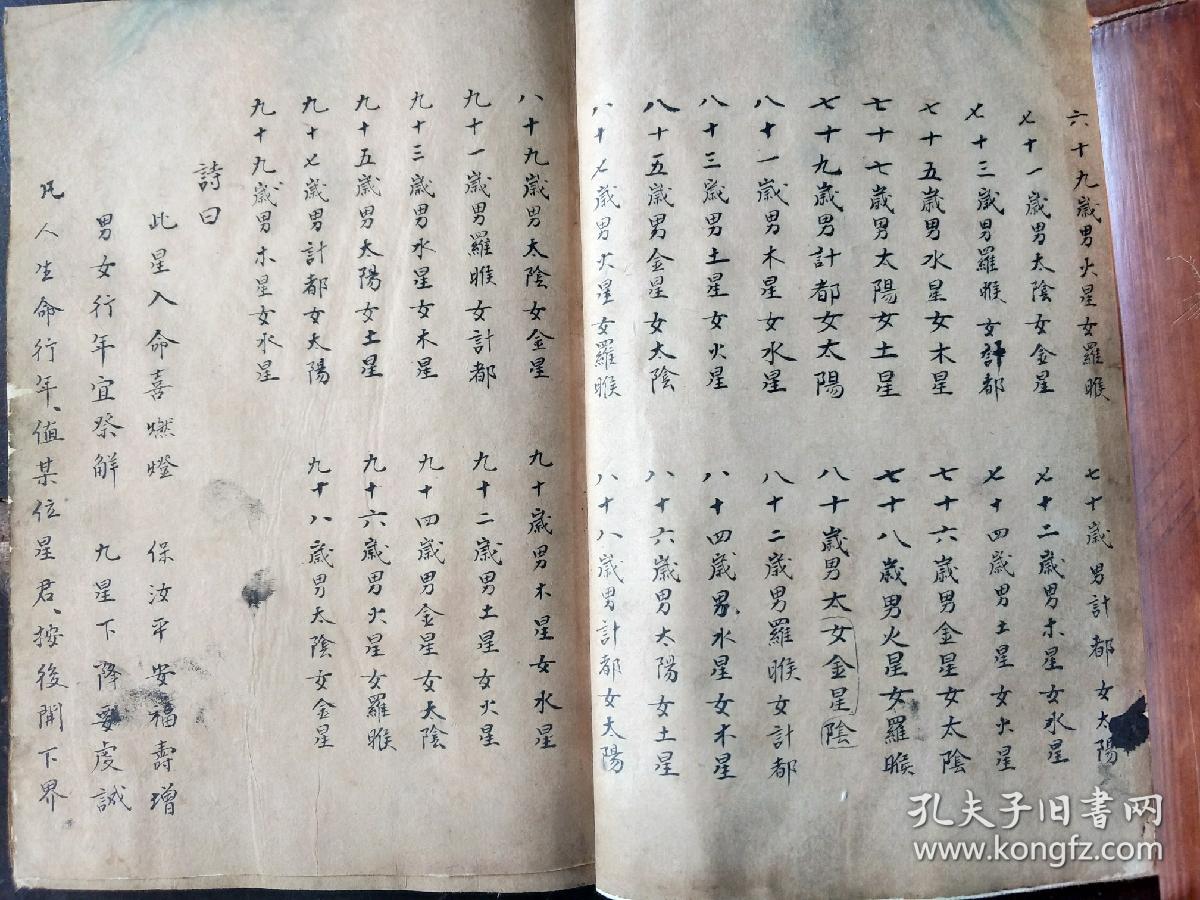 六十九歲男火星女羅睺
七十歲男計都女太陽
七十一歲男太陰女金星
七十二歲男木星女水星
七十三歲男羅睺女計都
七十四歲男土星女火星
七十五歲男水星女木星
七十六歲男金星女太陰
七十七歲男太陽女土星
七十八歲男火星女羅睺
七十九歲男計都女太陽
八十歲男太女金星陰
八十一歲男木星女水星
八十二歲男羅睺女計都
八十三歲男土星女火星
八十四歲男水星女木星
八十五歲男金星女太陰
八十六歲男太陽女土星
八十七歲男火星女羅睺
八十八歲男計都女太陽
八十九歲男太陰女金星
九十歲男木星女水星
九十一歲男羅睺女計都
九十二歲男土星女火星
九十三歲男水星女木星
九十四歲男金星女太陰
九十五歲男太陽女土星
九十六歲男火星女羅睺
九十七歲男計都女太陽
九十八歲男太陰女金星
九十九歲男木星女水星
詩曰
此星入命喜燃燈 保汝平安福壽增
男女行年宜祭解 九星下降要虔誠
凡人生命行年、值某位星君、按後開下界
孔夫子旧书网
www.kongfz.com